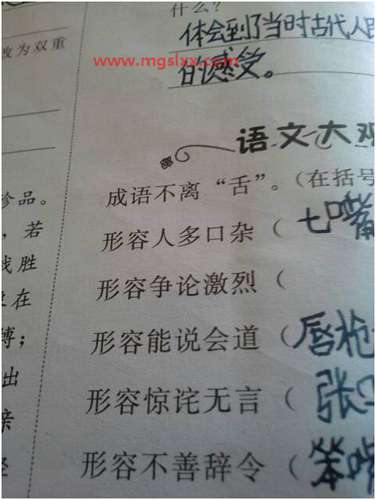 什么？
体会到了当时古代人民
的感受。
www.mgslxx.com
改为双重
语文大观
成语不离“舌”。（在括号
形容人多口杂（七嘴
形容争论激烈（
形容能说会道（唇枪
形容惊诧无言（张口
形容不善辞令（笨嘴
珍品。
，若
战胜
在
搏；
出
亲